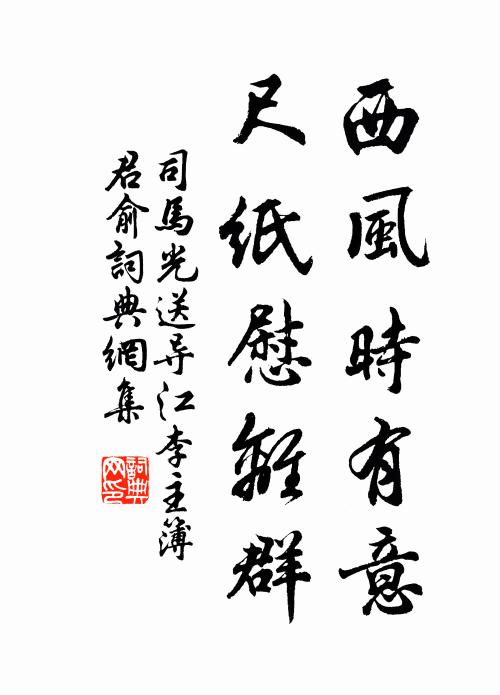 西風時有意
尺紙慰離群
司馬光送导江李主簿
君俞詞典網集
詞典网印